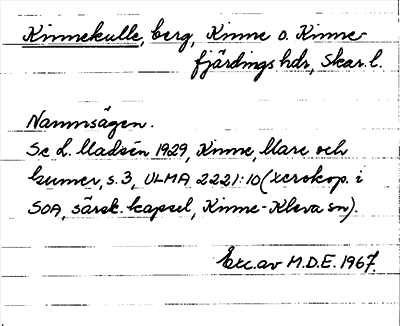 Kinnekulle, berg, Kinne o. Kinne-
fjärdings hdr, Skar. l.
Namnsägen.
Se L. Madsén 1929, Kinne, Mare och
Gumer, s. 3, ULMA 2221:10 (xerokop. i
SOA, särsk. kapsel, Kinne-Kleva sn).
Exc. av M.D.E. 1967.